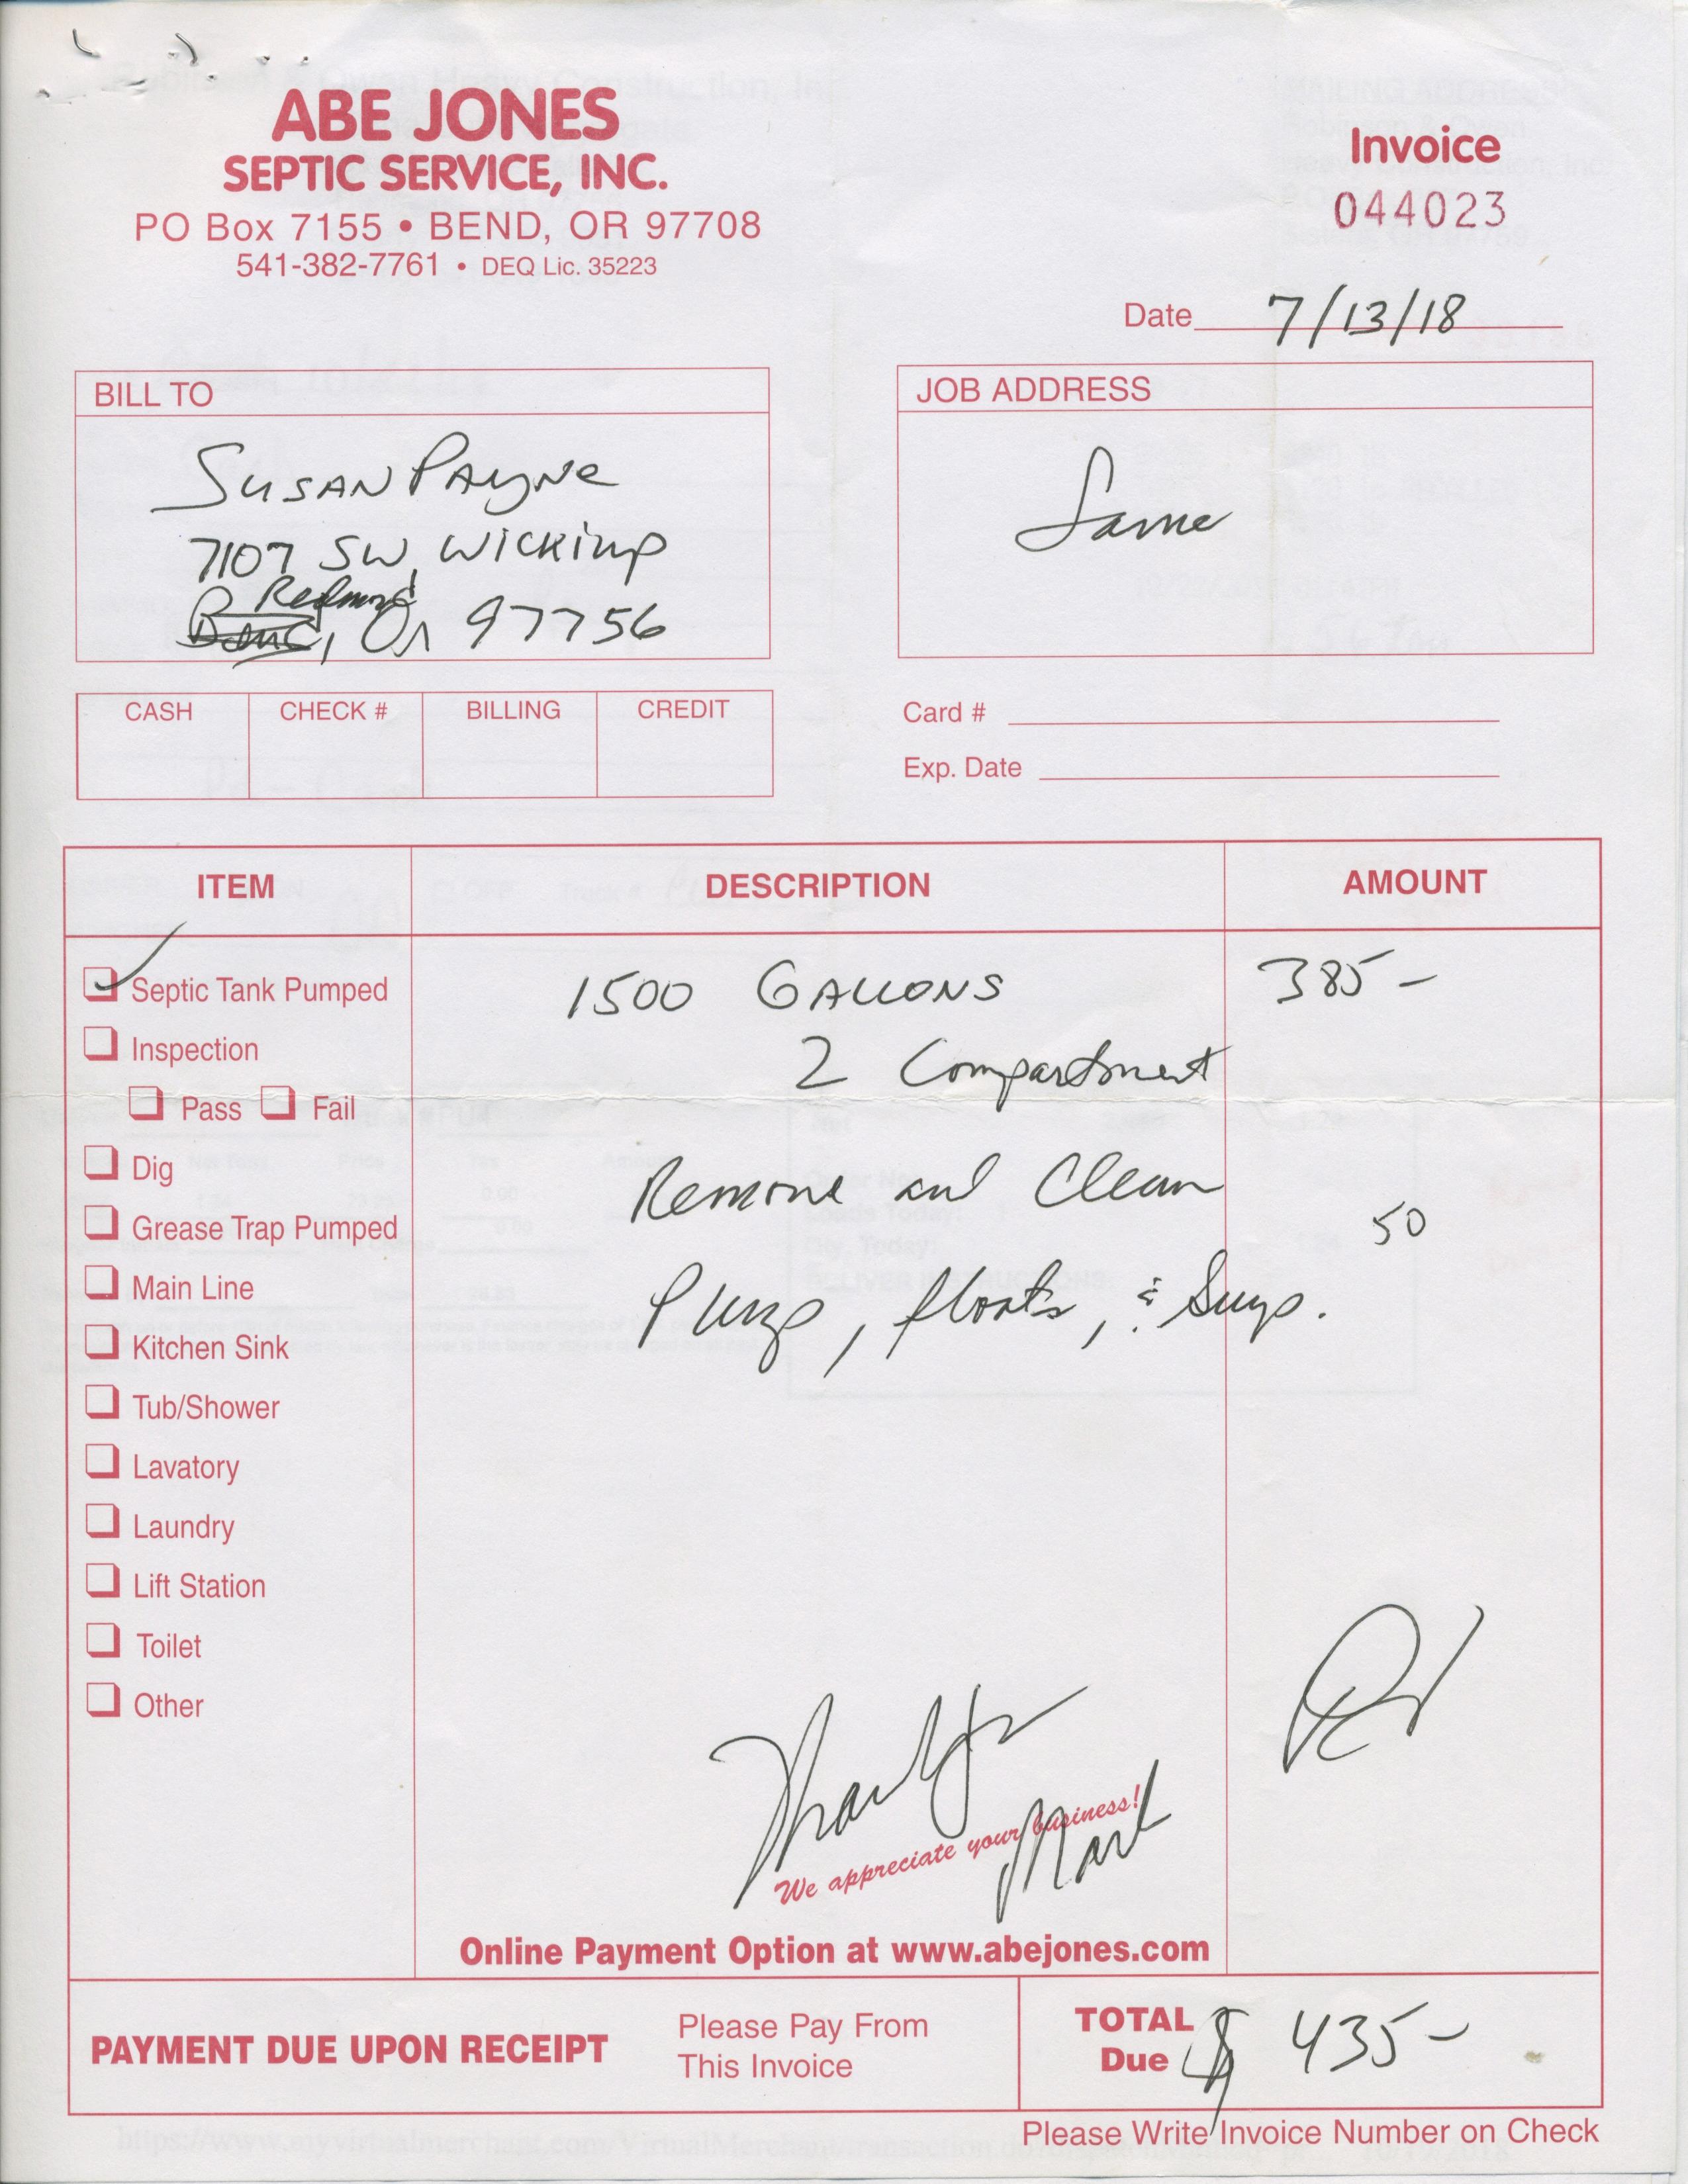 ABE JONES
SEPTIC SERVICE, INC.
PO Box 7155 • BEND, OR 97708
541-382-7761 • DEQ Lic. 35223
Invoice
044023
Date 7/13/18
BILL TO
SUSAN PAYNE
7107 SW WICKIUP
Redmond
Bend, Or 97756
JOB ADDRESS
Same
CASH CHECK # BILLING CREDIT
Card #
Exp. Date
ITEM DESCRIPTION AMOUNT
Septic Tank Pumped 1500 GALLONS 385-
Inspection 2 Compartment
Pass Fail
Dig Remove and Clean
Grease Trap Pumped 50
Main Line Pump, floats, &
Kitchen Sink
Tub/Shower
Lavatory
Laundry
Lift Station
Toilet
Other
Thank you
Mark
We appreciate your business!
Online Payment Option at www.abejones.com
PAYMENT DUE UPON RECEIPT
Please Pay From
This Invoice
TOTAL
Due $ 435-
Please Write Invoice Number on Check